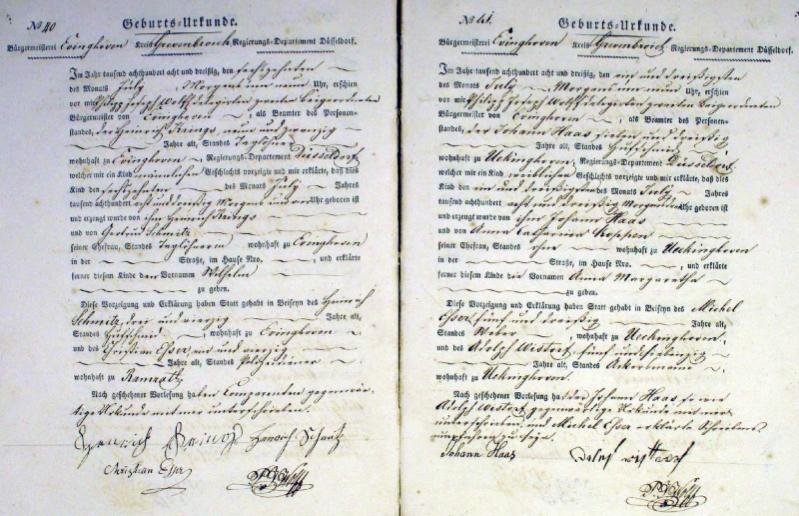 No 40 Geburts-Urkunde.
Bürgermeisterei Evinghoven Kreis Grevenbroich Regierungs-Departement Düsseldorf.
Im Jahr tausend achthundert acht und dreißig, den sechszehnten
des Monats July Morgens um neun Uhr, erschien
vor mir Philipp Joseph zweiten Beigeordneten
Bürgermeister von Evinghoven, als Beamter des Personen-
standes, der Heinrich neun und zwanzig
Jahre alt, Standes Taglöhner
wohnhaft zu Evinghoven, Regierungs-Departement Düsseldorf
welcher mir ein Kind männlichen Geschlechts vorzeigte und mir erklärte, daß dies
Kind den sechszehnten des Monats July Jahres
tausend achthundert acht und dreißig Morgens um Uhr geboren ist
und erzeugt wurde von ihm Heinrich
und von Gertrud Schmitz
seiner Ehefrau, Standes Taglöhnerin wohnhaft zu Evinghoven
in der Straße, im Hause Nro. , und erklärte
ferner diesem Kinde den Vornamen Wilhelm
zu geben.
Diese Vorzeigung und Erklärung haben Statt gehabt in Beiseyn des Heinrich
Schmitz, drei und vierzig Jahre alt,
Standes Hufschmid, wohnhaft zu Evinghoven
und des Christian Esser, und vierzig
Jahre alt, Standes
wohnhaft zu Ramrath
Nach geschehener Vorlesung haben Comparenten gegenwär-
tige Urkunde mit mir unterschrieben.
Heinrich
Christian Esser
No 41. Geburts-Urkunde.
Bürgermeisterei Evinghoven Kreis Grevenbroich Regierungs-Departement Düsseldorf.
Im Jahr tausend achthundert acht und dreißig, den ein und dreißigsten
des Monats July, Morgens um neun Uhr, erschien
vor mir Philipp Joseph zweiten Beigeordneten
Bürgermeister von Evinghoven, als Beamter des Personen-
standes, der Johann Haas sieben und dreißig
Jahre alt, Standes Hufschmid
wohnhaft zu Ueckinghoven, Regierungs-Departement Düsseldorf
welcher mir ein Kind weiblichen Geschlechts vorzeigte und mir erklärte, daß dies
Kind den ein und dreißigsten des Monats July Jahres
tausend achthundert acht und dreißig Morgens Uhr geboren ist
und erzeugt wurde von ihm Johann Haas
und von Anna Catharina
seiner Ehefrau, Standes ohne wohnhaft zu Ueckinghoven
in der Straße, im Hause Nro. , und erklärte
ferner diesem Kinde die Vornamen Anna Margaretha
zu geben.
Diese Vorzeigung und Erklärung haben Statt gehabt in Beiseyn des Michel
Esser, fünf und dreißig Jahre alt,
Standes Weber, wohnhaft zu Ueckinghoven,
und des Adolph fünf und siebenzig
Jahre alt, Standes Ackersmann
wohnhaft zu Uekinghoven.
Nach geschehener Vorlesung hat der Johann Haas so wie
Adolph gegenwärtige Urkunde mit mir
unterschrieben, und Michel Esser erklärte Schreibens
unerfahren zu seyn.
Johann Haas